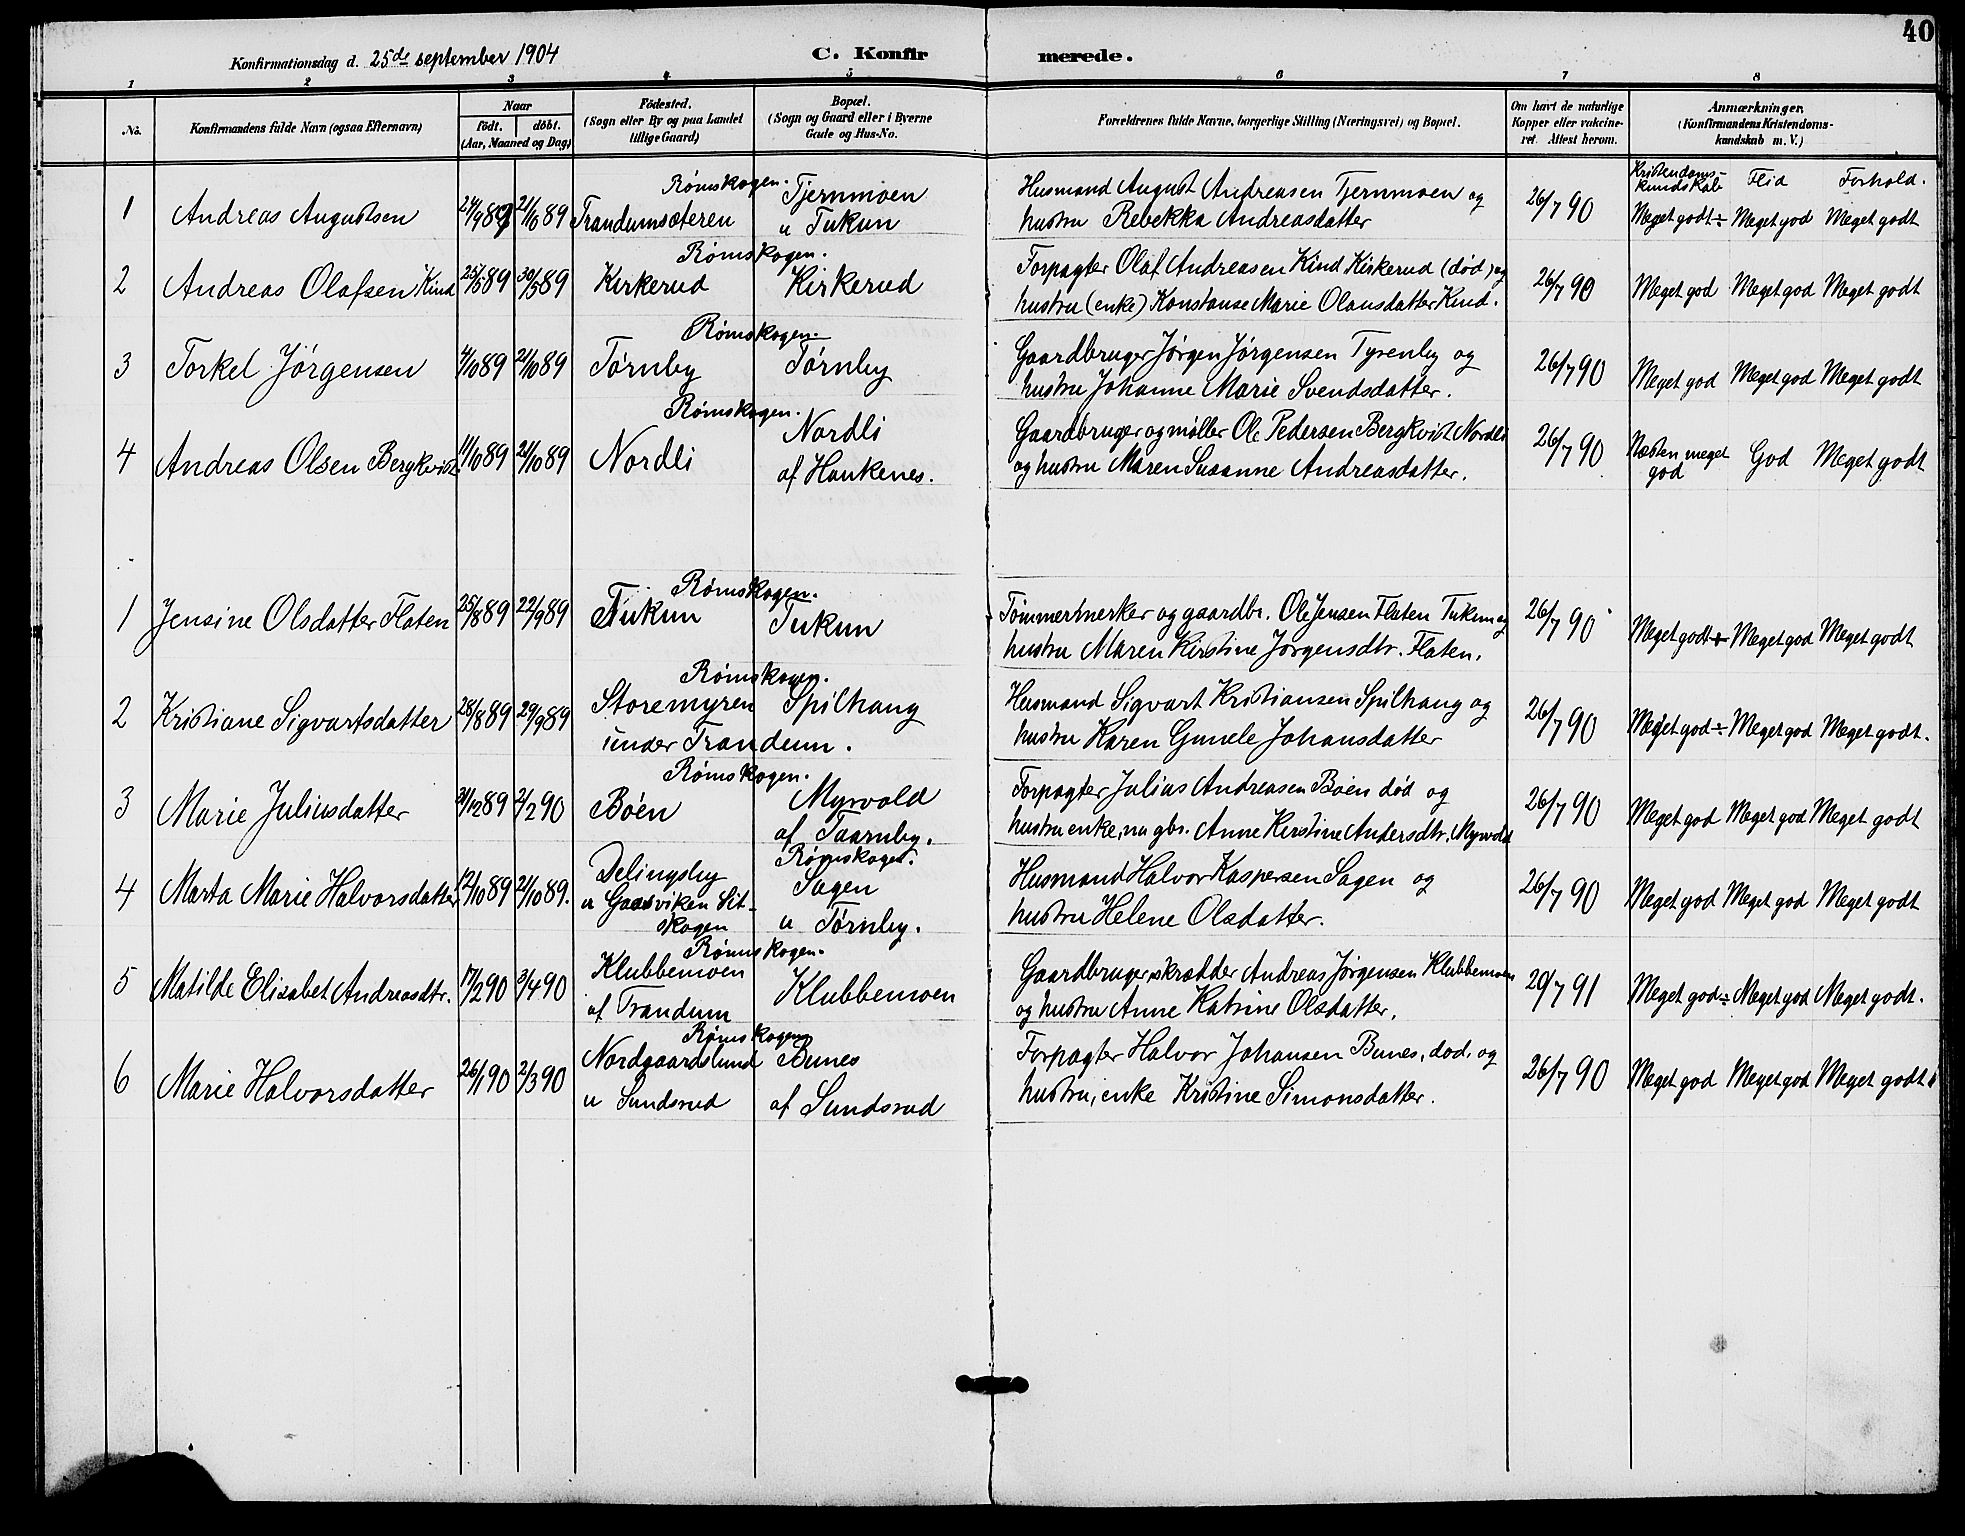 40
Konfirmationsdag d. 25de september 1904 C. Konfirmerede.
1 2 3 4 5 6 7 8
No. Konfirmandens fulde Navn (ogsaa Efternavn) Naar födt. döbt. (Aar, Maaned og Dag) Födested. (Sogn eller By og paa Landet tillige Gaard) Bopæl. (Sogn og Gaard eller i Byerne Gade og Hus-No. Forældrenes fulde Navne, borgerlige Stilling (Næringsvei) og Bopæl. Om havt de naturlige Kopper eller vakcineret. Attest herom. Anmærkninger. (Konfirmandens Kristendomskundskab m. V.)
Kristendomskundskab Flid Forhold.
Rømskogen.
1 Andreas Augustsen 24/9 89 21/10 89 Trandumsæteren Tjernmoen u Tukun Husmand August Andreasen Tjernmoen og hustru Rebekka Andreasdatter 26/7 90 Meget godt÷ Meget god Meget godt
Rømskogen.
2 Andreas Olafsen Kind 25/3 89 30/5 89 Kirkerud Kirkerud Forpagter Olaf Andreasen Kind Kirkerud (død) og hustru (enke) Konstanse Marie Olausdatter Kind. 26/7 90 Meget god Meget god Meget godt
Rømskogen.
3 Torkel Jørgensen 4/10 89 21/10 89 Tørnby Tørnby Gaardbruger Jørgen Jørgensen Tyrenby og hustru Johanne Marie Svendsdatter. 26/7 90 Meget god Meget god Meget godt
Rømskogen.
4 Andreas Olsen Bergkvist 11/10 89 21/10 89 Nordli Nordli af Haukenes. Gaardbruger og møller Ole Pedersen Bergkvist Nordli og hustru Maren Susanne Andreasdatter. 26/7 90 Næsten meget god God Meget godt
Rømskogen.
1 Jensine Olsdatter Flaten 25/8 89 22/9 89 Tukun Tukun Tømmermerker og gaardbr. Ole Jensen Flaten Tukun og hustru Maren Kirstine Jørgensdtr. Flaten. 26/7 90 Meget godt+ Meget god Meget godt
Rømskogen.
2 Kristiane Sigvartsdatter 28/8 89 29/9 89 Storemyren under Trandum. Spilhaug Husmand Sigvart Kristiansen Spilhaug og hustru Karen Gunele Johansdatter 26/7 90 Meget god÷ Meget god Meget godt.
Rømskogen.
3 Marie Juliusdatter 31/12 89 2/2 90 Bøen Myrvold af Taarnby. Forpagter Julius Andreasen Bøen død og hustru enke, nu gbr. Anne Kirstine Andersdtr. Myrvold 26/7 90 Meget god Meget god Meget godt
Rømskogen.
4 Marta Marie Halvorsdatter 12/10 89 21/10 89. Delingsby u Gaasviken Sitskogen Sagen u Tørnby. Husmand Halvor Kaspersen Sagen og hustru Helene Olsdatter. 26/7 90 Meget god Meget god Meget godt
Rømskogen.
5 Matilde Elisabet Andreasdtr. 17/2 90 3/4 90 Klubbemoen af Trandum Klubbemoen Gaardbruger, skrædder Andreas Jørgensen Klubbemoen og hustru Anne Katrine Olsdatter. 29/7 91 Meget god÷ Meget god Meget godt.
Rømskogen
6 Marie Halvorsdatter 26/1 90 2/3 90 Nordgaardslund u Sundsrud Bunes af Sundsrud Forpagter Halvor Johansen Bunes, død, og hustru, enke Kristine Simonsdatter. 26/7 90 Meget god Meget god Meget godt